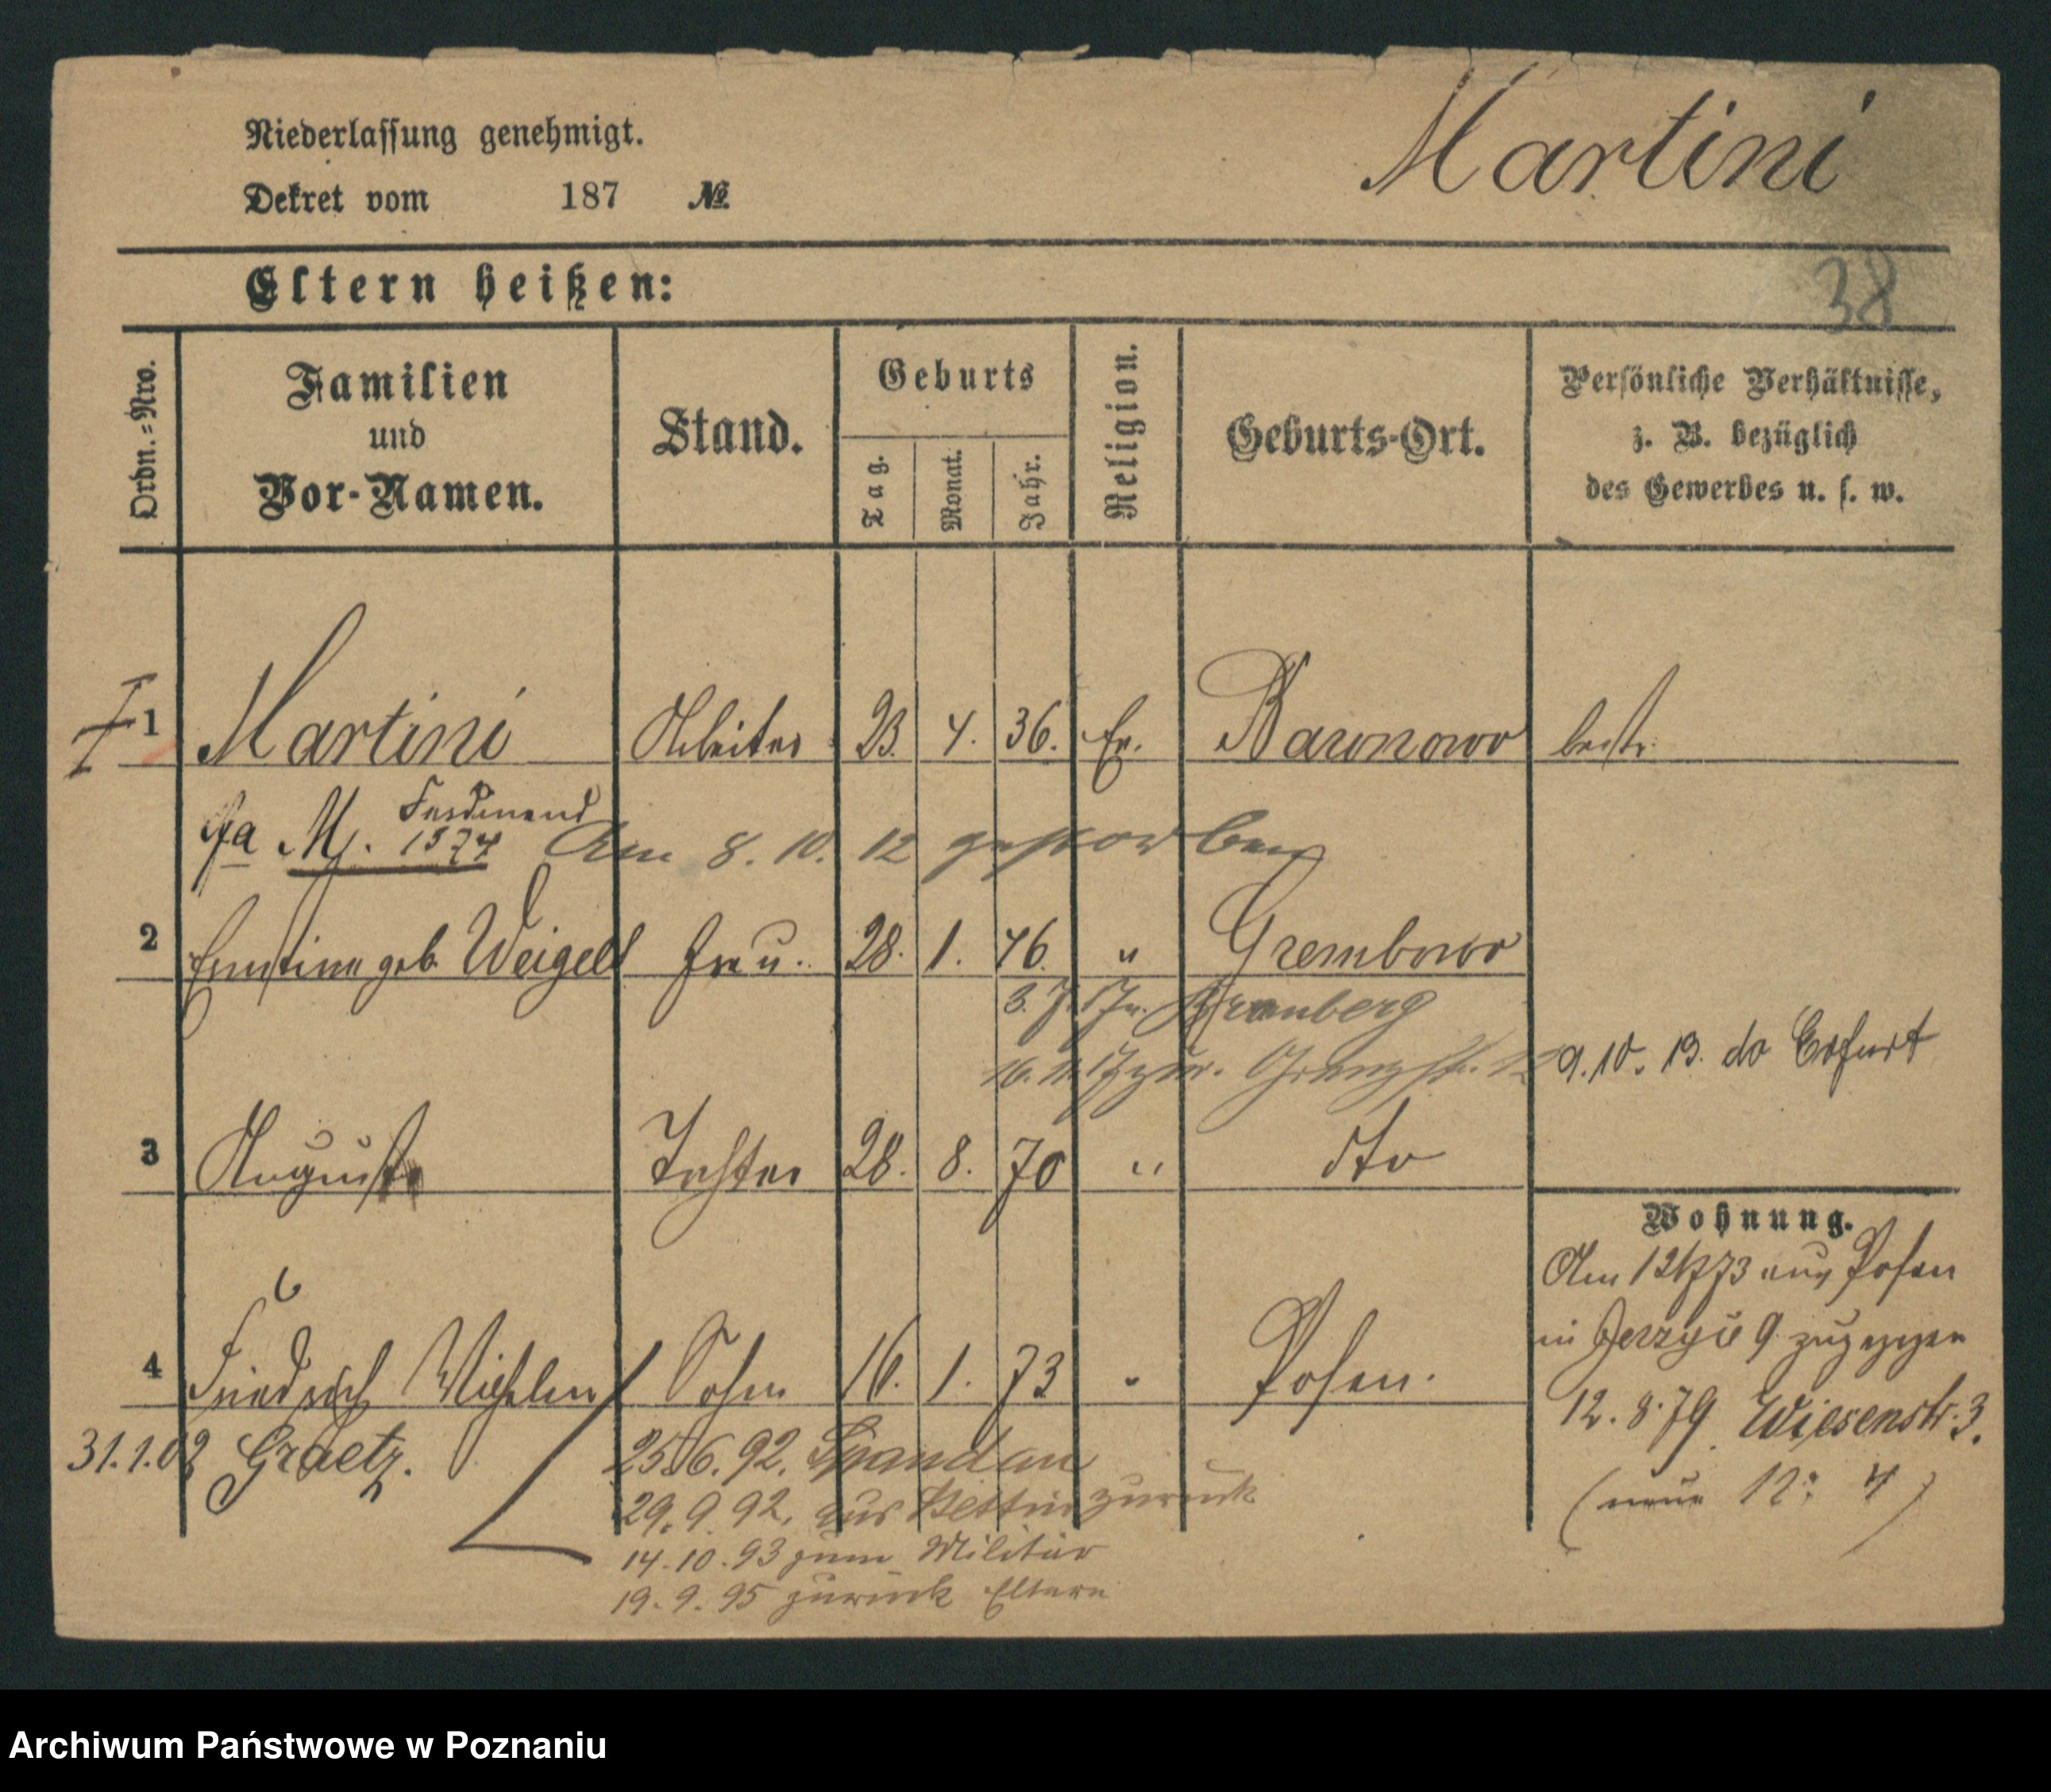 Niederlassung genehmigt.
Martini
Dekret vom 187 №
Eltern heißen:
38
Ordn.-Nro.
Familien
und
Vor-Namen.
Stand.
Geburts
Tag.
Monat.
Jahr.
Religion.
Geburts-Ort.
Persönliche Verhältnisse,
z. B. bezüglich
des Gewerbes u. s. w.
1 Martini Arbeiter 23. 4. 36. Ev. Baronowo bestr.
Ferdinand
M. 1574 Am 8. 10. 12 gestorben
2 Ernstine geb. Weigelt Frau. 28. 1. 46. " Grembowo
3. 7. 17 n. Bromberg
9. 10. 13. do Erfurt
3 Auguste Tochter 28. 8. 70 " dto
Wohnung.
Am 12/7 73 aus Posen
in Jerzyce 9 zugezogen
4 Friedrich Wilhelm Sohn 16. 1. 73 " Posen.
12. 8. 79 Wiesenstr. 3.
31. 1. 02 Graetz.
25. 6. 92. Spandau
(neue 4)
29. 9. 92. aus Stettin zurück
14. 10. 93 zum Militär
19. 9. 95 zurück Eltern
Archiwum Państwowe w Poznaniu